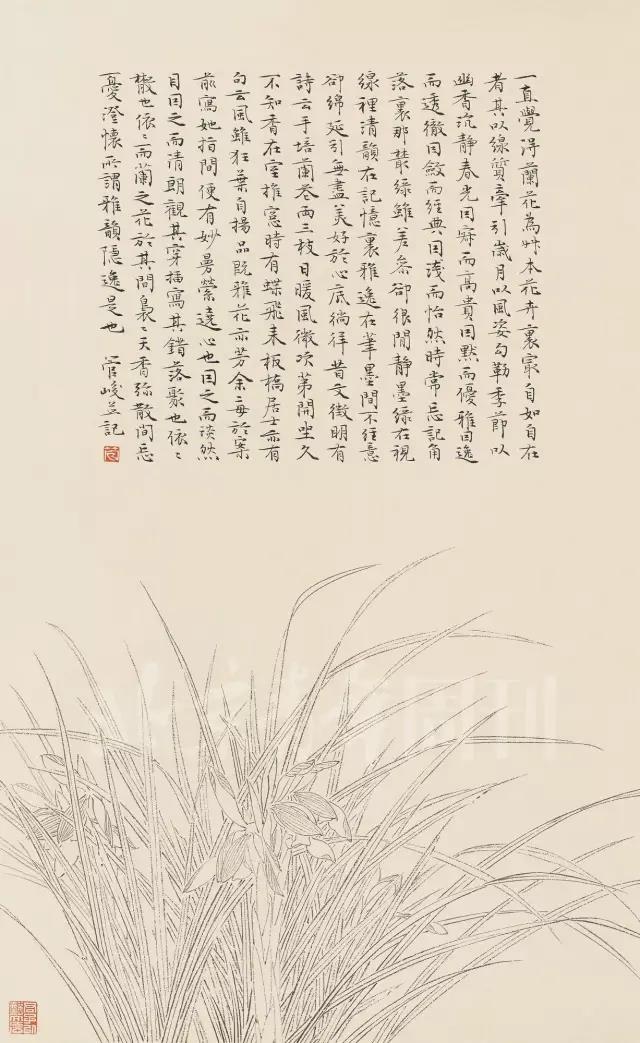 一直覺得蘭花為艸本花卉裏最自如自在
者其以線質牽引歲月以風姿勾勒季節以
幽香沉靜春光因寂而高貴因默而優雅因逸
而透徹因斂而經典因淺而怡然時常忘記角
落裏那叢綠雖差參卻很閒靜墨綠在視
線裡清韻在記憶裏雅逸在筆墨間不經意
卻綿延引無盡美好於心底徜徉昔文徵明有
詩云手培蘭花兩三枝日暖風微次第開坐久
不知香在室推窗時有蝶飛來板橋居士亦有
句云風雖狂葉自揚品既雅花亦芳余每於案
前寫她指間便有妙曼縈遶心也因之而淡然
目因之而清朗觀其穿插寫其錯落聚也依〻
散也依〻而蘭之花於其間裊〻天香弥散間忘
憂澄懷所謂雅韻隱逸是也 管峻並記
周刊